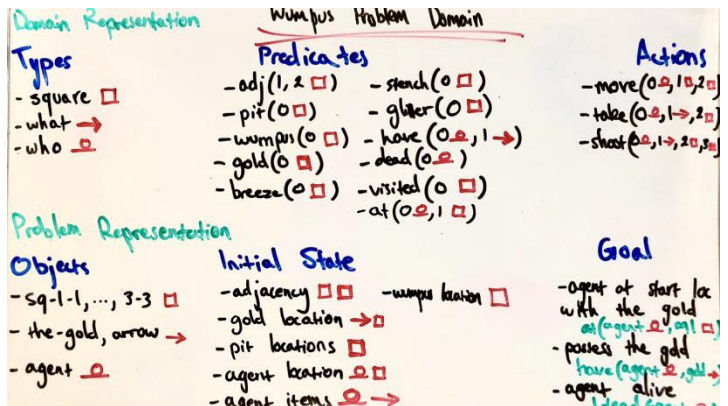 Domain Representation
Wumpus Problem Domain
Types
- square
- what
- who
Predicates
- adj(1, 2)
- pit(0)
- wumpus(0)
- gold(0)
- breeze(0)
- stench(0)
- glitter(0)
- have(0, 1)
- dead(0)
- visited(0)
- at(0, 1)
Actions
- move(0, 1, 2)
- take(0, 1, 2)
- shoot(0, 1, 2, 3)
Problem Representation
Objects
- sq-1-1, ..., 3-3
- the-gold, arrow
- agent
Initial State
- adjacency
- gold location
- pit locations
- agent location
- agent items
- wumpus location
Goal
- agent at start loc
with the gold
at(agent
- possess the gold
have(agent
- agent alive